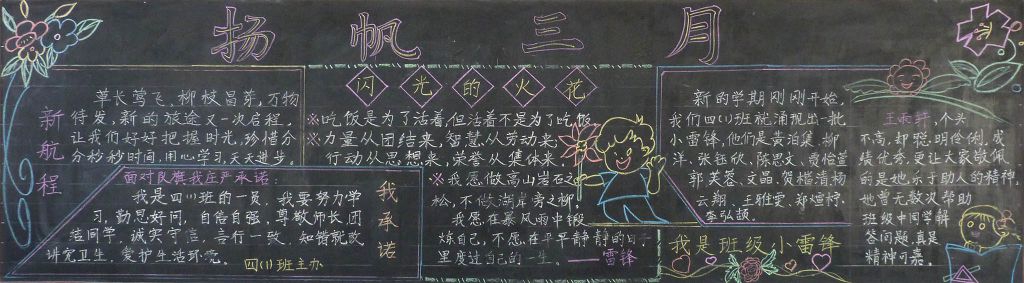 扬帆三月
新航程
草长莺飞、柳枝昌芽,万物
待发,新的旅途又一次启程,
让我们好好把握时光,珍惜分
分秒秒时间,用心学习,天天进步。
面对队旗我庄严承诺:
我是四(1)班的一员,我要努力学
习,勤思好问,自信自强,尊敬师长,团
结同学,诚实守信,言行一致,知错就改
讲究卫生,爱护生活环境。
四(1)班主办
我承诺
闪光的火花
※吃饭是为了活着,但活着不是为了吃饭。
※力量从团结来,智慧从劳动来,
行动从思想来,荣誉从集体来。
※我愿做高山岩石之
松,不做湖岸旁之柳;
我愿在暴风雨中锻
炼自己,不愿在平平静静的日子
里度过自己的一生。——雷锋
新的学期刚刚开始,
我们四(1)班就涌现出一批
小雷锋,他们是黄泊集、柳
洋、张钰欣、陈思文、贾怡萱
郭芙蓉、文晶、贺楷清杨
云翔、王雅雯、郑煊桪、
李弘颉。
我是班级小雷锋
王雨轩,个头
不高,却聪明伶俐,成
绩优秀,更让大家敬佩
的是她乐于助人的精神,
她曾无数次帮助
班级中同学解
答问题,真是
精神可嘉。